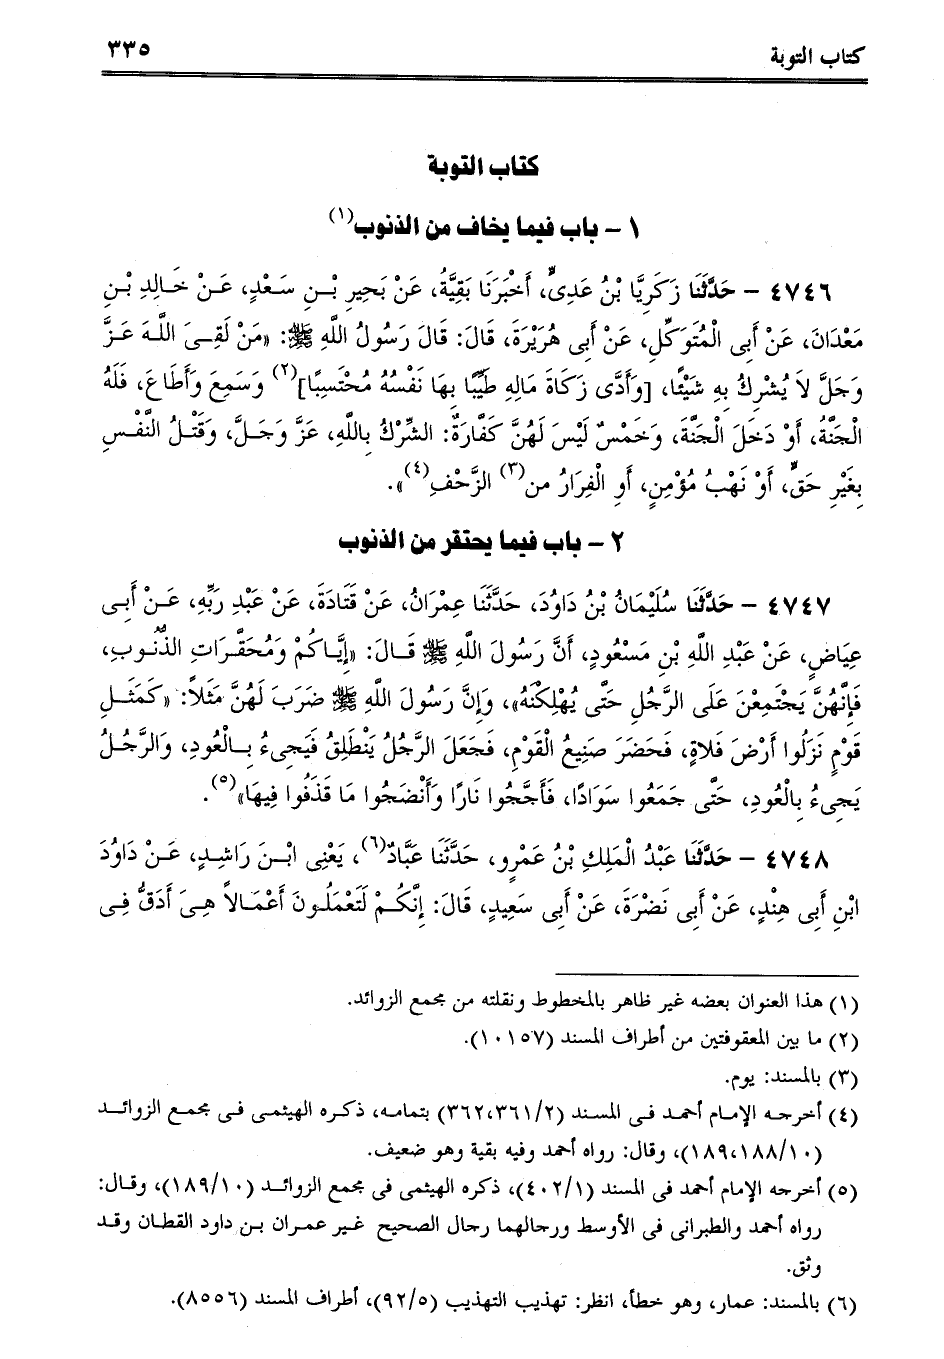 كتاب التوبة ٣٣٥
كتاب التوبة
١ – باب فيما يخاف من الذنوب(١)
٤٧٤٦ – حَدَّثَنَا زَكَرِيَّا بْنُ عَدِىٍّ، أَخْبَرَنَا بَقِيَّةُ، عَنْ بَحِيرِ بْنِ سَعْدٍ، عَنْ خَالِدِ بْنِ
مَعْدَانَ، عَنْ أَبِى الْمُتَوَكِّلِ، عَنْ أَبِى هُرَيْرَةَ، قَالَ: قَالَ رَسُولُ اللَّهِ ﷺ: «مَنْ لَقِىَ اللَّهَ عَزَّ
وَجَلَّ لاَ يُشْرِكُ بِهِ شَيْئًا، [وَأَدَّى زَكَاةَ مَالِهِ طَيِّبًا بِهَا نَفْسُهُ مُحْتَسِبًا](٢) وَسَمِعَ وَأَطَاعَ، فَلَهُ
الْجَنَّةُ، أَوْ دَخَلَ الْجَنَّةَ، وَخَمْسٌ لَيْسَ لَهُنَّ كَفَّارَةٌ: الشِّرْكُ بِاللَّهِ، عَزَّ وَجَلَّ، وَقَتْلُ النَّفْسِ
بِغَيْرِ حَقٍّ، أَوْ نَهْبُ مُؤْمِنٍ، أَوِ الْفِرَارُ من(٣) الزَّحْفِ(٤)».
٢ – باب فيما يحتقر من الذنوب
٤٧٤٧ – حَدَّثَنَا سُلَيْمَانُ بْنُ دَاوُدَ، حَدَّثَنَا عِمْرَانُ، عَنْ قَتَادَةَ، عَنْ عَبْدِ رَبِّهِ، عَنْ أَبِى
عِيَاضٍ، عَنْ عَبْدِ اللَّهِ بْنِ مَسْعُودٍ، أَنَّ رَسُولَ اللَّهِ ﷺ قَالَ: «إِيَّاكُمْ وَمُحَقَّرَاتِ الذُّنُوبِ،
فَإِنَّهُنَّ يَجْتَمِعْنَ عَلَى الرَّجُلِ حَتَّى يُهْلِكْنَهُ»، وَإِنَّ رَسُولَ اللَّهِ ﷺ ضَرَبَ لَهُنَّ مَثَلاً: «كَمَثَلِ
قَوْمٍ نَزَلُوا أَرْضَ فَلاةٍ، فَحَضَرَ صَنِيعُ الْقَوْمِ، فَجَعَلَ الرَّجُلُ يَنْطَلِقُ فَيَجِىءُ بِالْعُودِ، وَالرَّجُلُ
يَجِىءُ بِالْعُودِ، حَتَّى جَمَعُوا سَوَادًا، فَأَجَّجُوا نَارًا وَأَنْضَجُوا مَا قَذَفُوا فِيهَا»(٥).
٤٧٤٨ – حَدَّثَنَا عَبْدُ الْمَلِكِ بْنُ عَمْرٍو، حَدَّثَنَا عَبَّادٌ(٦)، يَعْنِى ابْنَ رَاشِدٍ، عَنْ دَاوُدَ
ابْنِ أَبِى هِنْدٍ، عَنْ أَبِى نَضْرَةَ، عَنْ أَبِى سَعِيدٍ، قَالَ: إِنَّكُمْ لَتَعْمَلُونَ أَعْمَالاً هِىَ أَدَقُّ فِى
(١) هذا العنوان بعضه غير ظاهر بالمخطوط ونقلته من مجمع الزوائد.
(٢) ما بين المعقوفتين من أطراف المسند (١٠١٥٧).
(٣) بالمسند: يوم.
(٤) أخرجه الإمام أحمد فى المسند (٣٦١/٢،٣٦٢) بتمامه، ذكره الهيثمى فى مجمع الزوائد
(١٠/١٨٨،١٨٩)، وقال: رواه أحمد وفيه بقية وهو ضعيف.
(٥) أخرجه الإمام أحمد فى المسند (٤٠٢/١)، ذكره الهيثمى فى مجمع الزوائد (١٨٩/١٠)، وقال:
رواه أحمد والطبرانى فى الأوسط ورجالهما رجال الصحيح غير عمران بن داود القطان وقد
وثق.
(٦) بالمسند: عمار، وهو خطأ، انظر: تهذيب التهذيب (٩٢/٥)، أطراف المسند (٨٥٥٦).